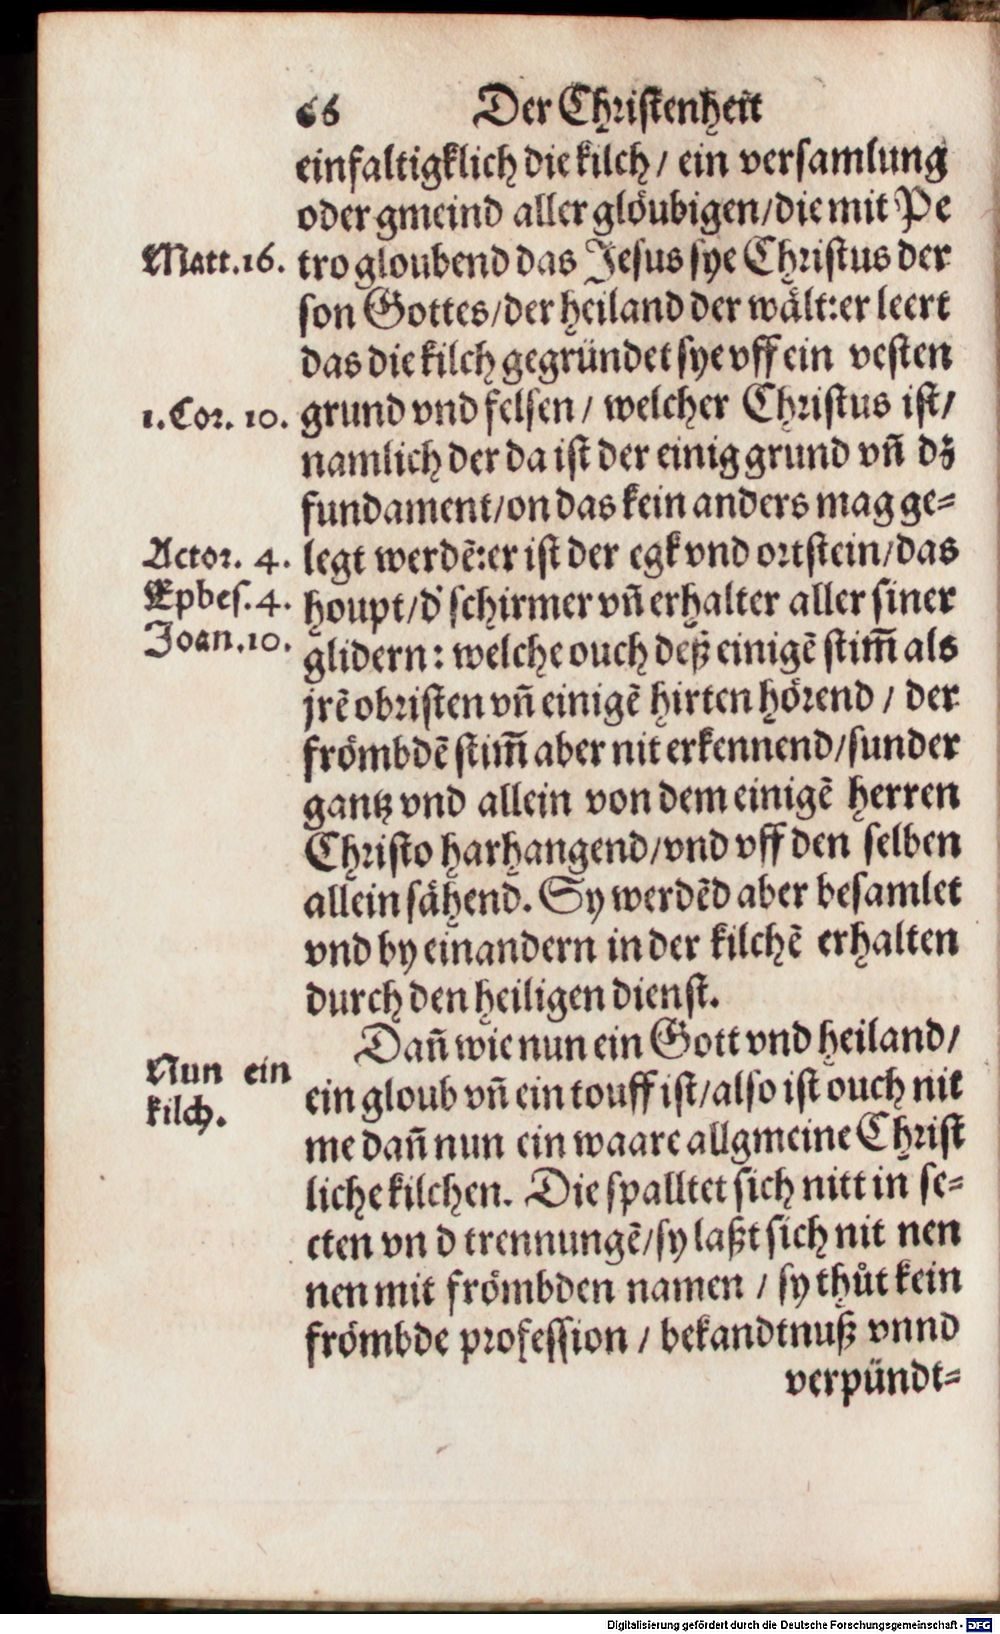 66 Der Christenheit
einfaltigklich die kilch / ein versamlung
oder gmeind aller glöubigen/die mit Pe
Matt.16. tro gloubend das Jesus sye Christus der
son Gottes/der heiland der wält:er leert
das die kilch gegründet sye vff ein vesten
1.Cor. 10. grund vnd felsen / welcher Christus ist/
namlich der da ist der einig grund vn̄ dz
fundament/on das kein anders mag ge=
Actor. 4. legt werdē:er ist der egk vnd ortstein/das
Ephes.4. houpt/d' schirmer vn̄ erhalter aller siner
Joan.10. glidern: welche ouch deß einigē stim̄ als
jrē obristen vn̄ einigē hirten hörend / der
frömbdē stim̄ aber nit erkennend/sunder
gantz vnd allein von dem einigē herren
Christo harhangend/vnd vff den selben
allein sähend. Sy werdēd aber besamlet
vnd by einandern in der kilchē erhalten
durch den heiligen dienst.
Dan̄ wie nun ein Gott vnd heiland/
Nun ein
ein gloub vn̄ ein touff ist/also ist ouch nit
kilch.
me dan̄ nun ein waare allgmeine Christ
liche kilchen. Die spalltet sich nitt in se=
cten vn d trennungē/sy laßt sich nit nen
nen mit frömbden namen / sy thůt kein
frömbde profession / bekandtnuß vnnd
verpündt=
Digitalisierung gefördert durch die Deutsche Forschungsgemeinschaft - DFG